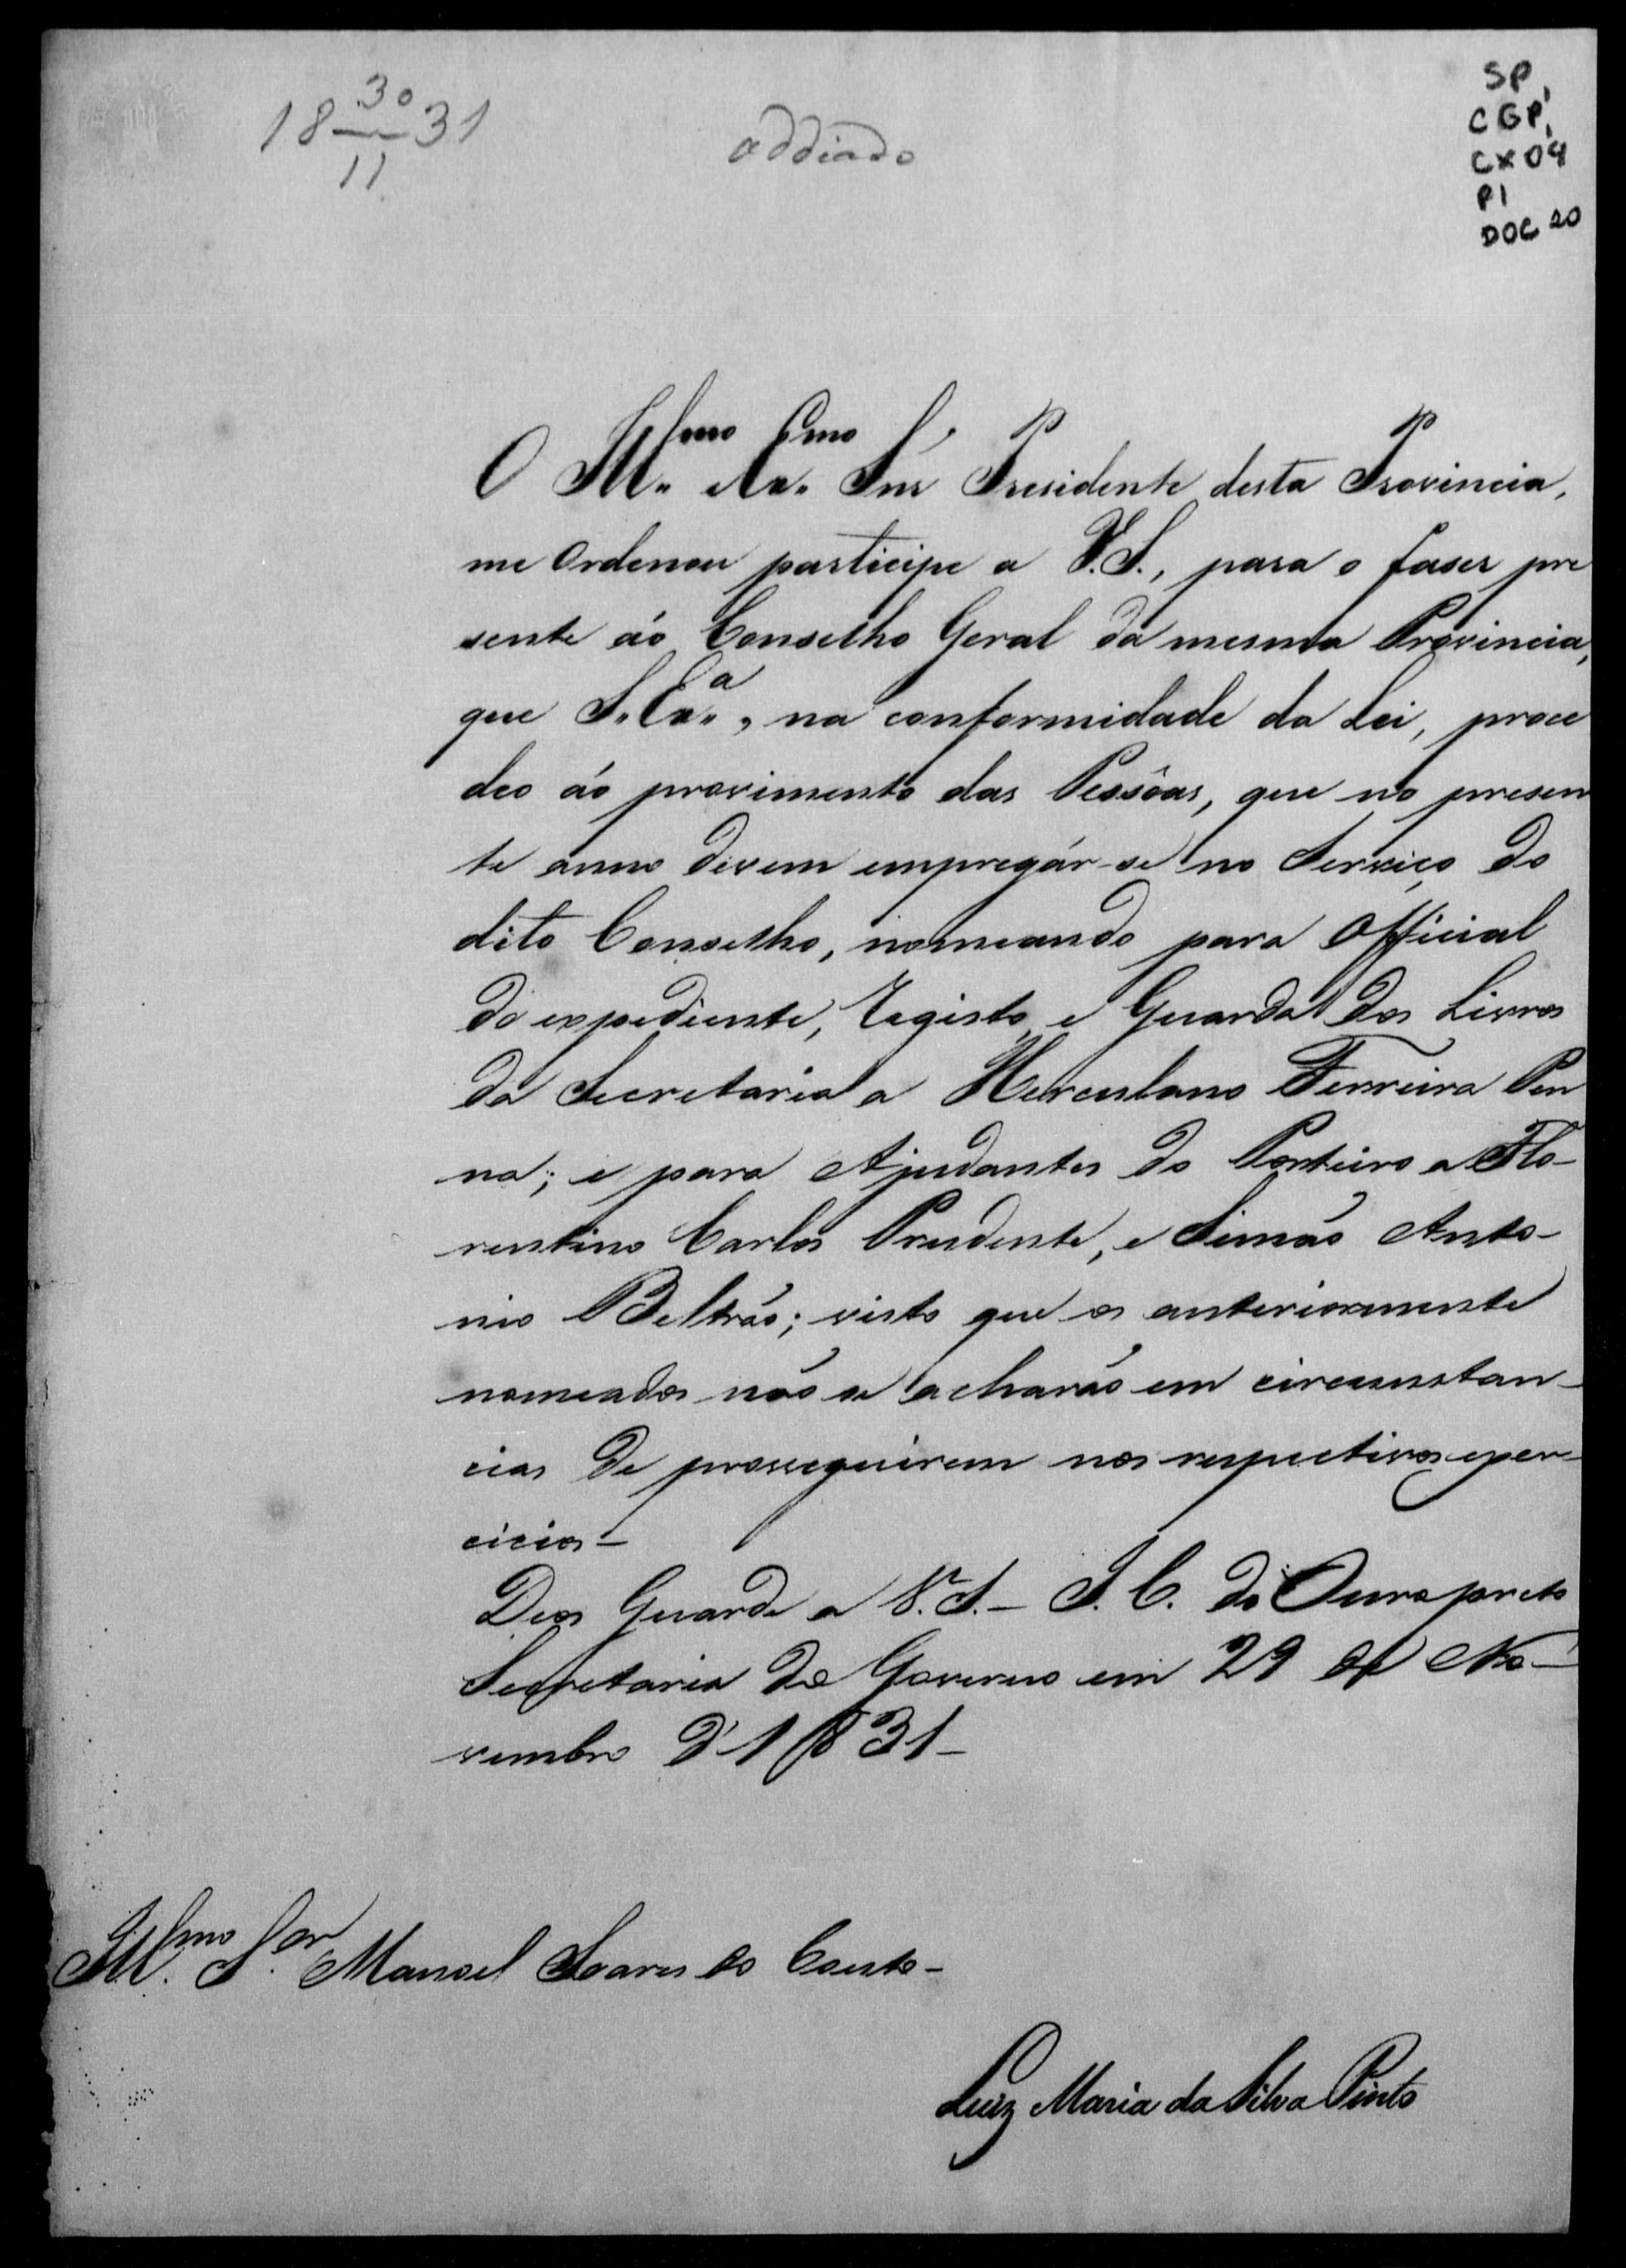 18 30/11 31
addiado
SP,
CGP,
CX 04
P1
DOC 20
O Ill.mo Ex.mo Snr Presidente desta Provincia,
me Ordenou participe a V.S., para o faser pre
sente áo Conselho Geral da mesma Provincia,
que S. Ex.a, na conformidade da Lei, proce
deo áo provimento das Pessôas, que no presen
te anno devem empregár-se no Serviço do
dito Conselho, nomeando para Official
do expediente, Registo, e Guarda dos Livros
da Secretaria a Herculano Ferreira Pen
na; e para Ajudantes do Porteiro a Flo-
rentino Carlos Prudente, e Simão Anto-
nio Beltrão; visto que os anteriormente
nomeados não se acharão em circunstan-
cias de prosseguirem nos respectivos exer-
cicios-
Deos Guarde a V. S. - I. C. do Ouro preto
Secretaria do Governo em 29 de No-
vembro d'1831-
Ill.mo S.or Manoel Soares do Couto-
Luiz Maria da Silva Pinto